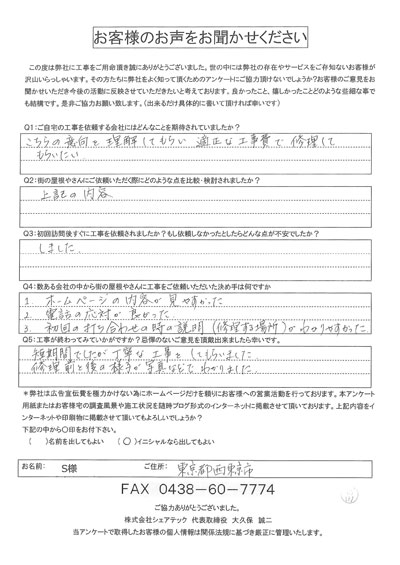 お客様のお声をお聞かせください
この度は弊社に工事をご用命頂き誠にありがとうございました。世の中には弊社の存在やサービスをご存知ないお客様が
沢山いらっしゃいます。その方たちに弊社をよく知って頂くためのアンケートにご協力頂けないでしょうか?お客様のご意見をお
聞かせいただき今後の活動に反映させていただきたいと考えております。良かったこと、嬉しかったことどのような些細な事で
も結構です。是非ご協力お願い致します。(出来るだけ具体的に書いて頂ければ幸いです)
Q1:ご自宅の工事を依頼する会社にはどんなことを期待されていましたか?
こちらの意向を理解してもらい 適正な工事費で修理して
もらいたい
Q2:街の屋根やさんにご依頼いただく際にどのような点を比較・検討されましたか?
上記の内容
Q3:初回訪問後すぐに工事を依頼されましたか?もし依頼しなかったとしたらどんな点が不安でしたか?
しました
Q4:数ある会社の中から街の屋根やさんに工事をご依頼いただいた決め手は何ですか
1. ホームページの内容が見やすかった
2. 電話の応対が良かった
3. 初回の打ち合わせの時の説明(修理する場所)がわかりやすかった
Q5:工事が終わってみていかがですか?忌憚のないご意見を頂戴出来ましたら幸いです。
短期間でしたが丁寧な工事をしてもらいました
修理前と後の様子が写真などでわかりました
*弊社は広告宣伝費を極力かけない為にホームページだけを頼りにお客様への営業活動を行っております。本アンケート
用紙またはお客様宅の調査風景や施工状況を随時ブログ形式のインターネットに掲載させて頂いております。上記内容をイ
ンターネットや印刷物に掲載させて頂いてもよろしいでしょうか?
下記の中から〇印をお付下さい。
( )名前を出してもよい (〇)イニシャルなら出してもよい
お名前: S様 ご住所: 東京都西東京市
FAX 0438-60-7774
ご協力ありがとうございました。
株式会社シェアテック 代表取締役 大久保 誠二
当アンケートで取得したお客様の個人情報は関係法規に基づき厳正に管理いたします。